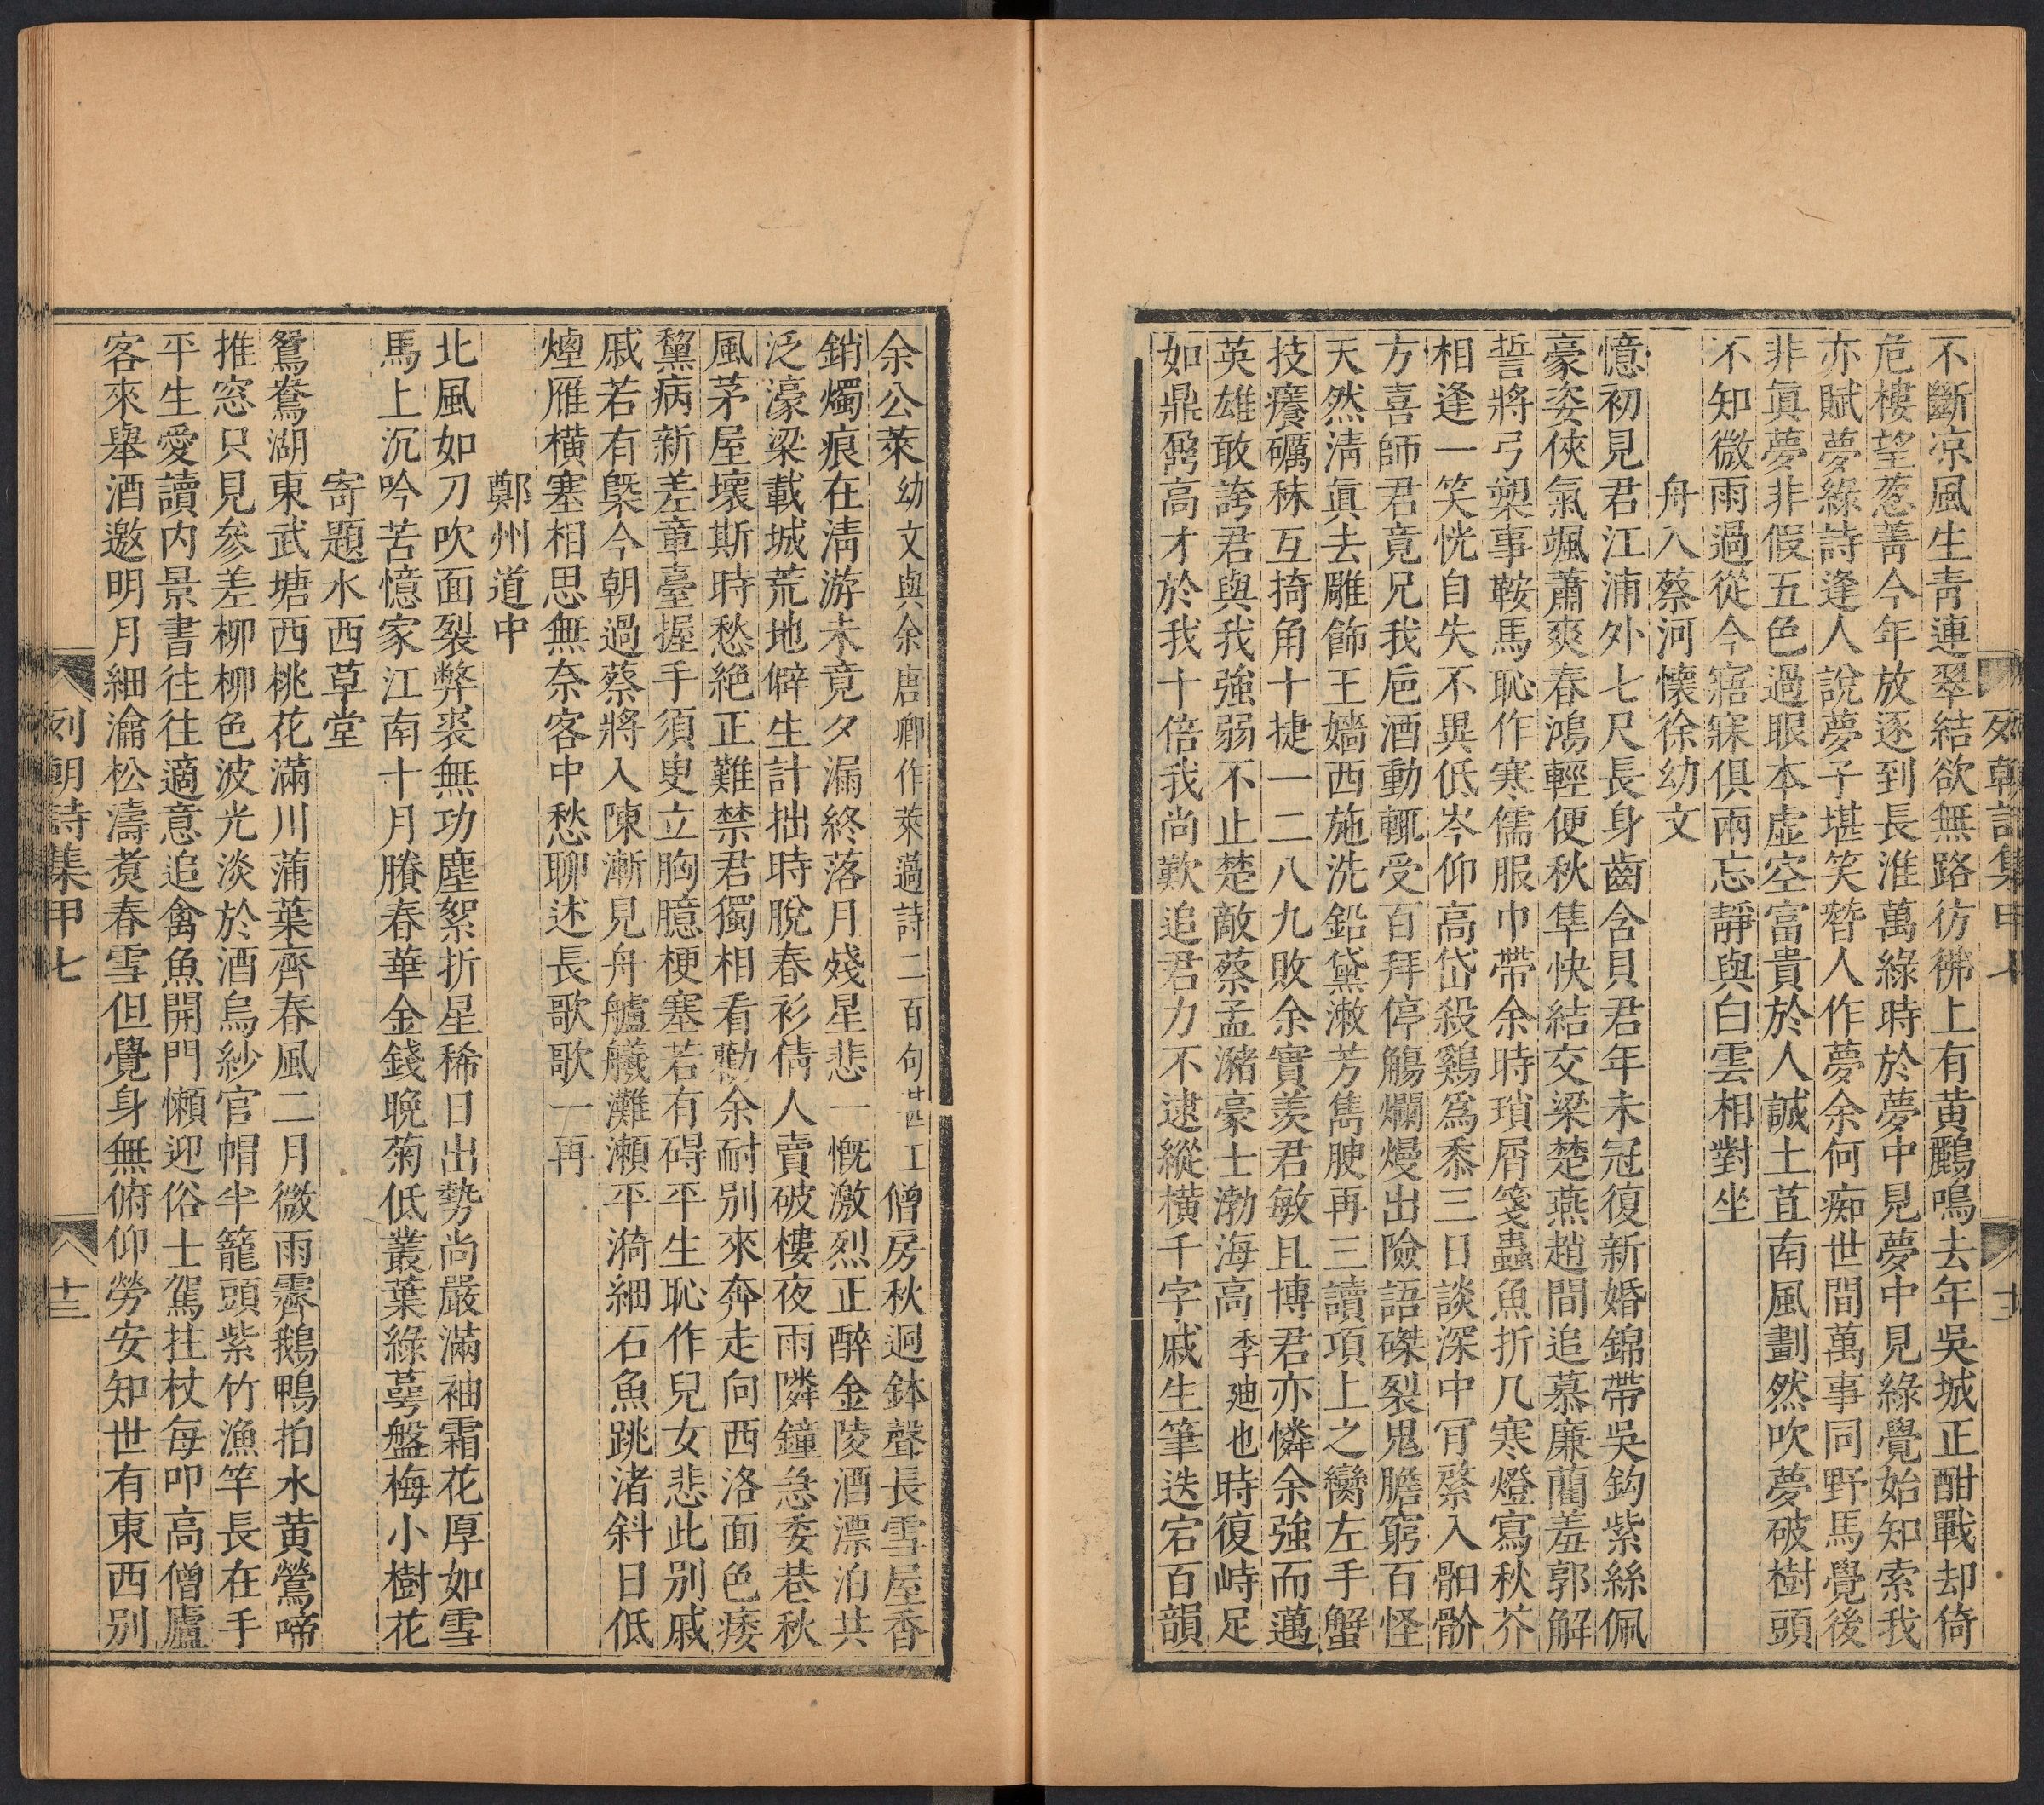 列朝詩集甲七
十二
不斷凉風生靑連翠結欲無路彷彿上有黃鸝鳴去年吳城正酣戰却倚
危樓望葱菁今年放逐到長淮萬綠時於夢中見夢中見綠覺始知索我
亦賦夢綠詩逢人說夢子堪笑替人作夢余何痴世間萬事同野馬覺後
非眞夢非假五色過眼本虛空富貴於人誠土苴南風劃然吹夢破樹頭
不知微雨過從今寤寐俱兩忘靜與白雲相對坐
舟入蔡河懷徐幼文
憶初見君江浦外七尺長身齒含貝君年未冠復新婚錦帶吳鈎紫絲佩
豪姿俠氣颯蕭爽春鴻輕便秋隼快結交梁楚燕趙間追慕廉藺羞郭解
誓將弓槊事鞍馬恥作寒儒服巾帶余時瑣屑箋蟲魚折几寒燈寫秋芥
相逢一笑恍自失不異低岑仰高岱殺鷄爲黍三日談深中肎綮入䯊骱
方喜師君竟兄我巵酒動輒受百拜停觴爛熳出險語磔裂鬼膽窮百怪
天然淸眞去雕飾王嬙西施洗鉛黛漱芳雋腴再三讀項上之臠左手蟹
技癢礪秣互掎角十捷一二八九敗余實羨君敏且博君亦憐余強而邁
英雄敢誇君與我強弱不止楚敵蔡孟瀦豪士渤海高季迪也時復峙足
如鼎鬲高才於我十倍我尚歎追君力不逮縱橫千字戚生筆迭宕百韻
余公萊幼文與余唐卿作萊邁詩二百句廿四工僧房秋迥鉢聲長雪屋香
銷燭痕在淸游未竟夕漏終落月殘星悲一慨激烈正醉金陵酒漂泊共
泛濠梁載城荒地僻生計拙時脫春衫倩人賣破樓夜雨隣鐘急委巷秋
風茅屋壞斯時愁絶正難禁君獨相看勸余耐别來奔走向西洛面色痿
黧病新差章臺握手須臾立胸臆梗塞若有碍平生恥作兒女悲此別戚
戚若有槩今朝過蔡將入陳漸見舟艫艤灘瀨平漪細石魚跳渚斜日低
煙雁橫塞相思無奈客中愁聊述長歌歌一再
鄭州道中
北風如刀吹面裂弊裘無功塵絮折星稀日出勢尚嚴滿袖霜花厚如雪
馬上沉吟苦憶家江南十月賸春華金錢晚菊低叢葉綠萼盤梅小樹花
寄題水西草堂
鴛鴦湖東武塘西桃花滿川蒲葉齊春風二月微雨霽鵝鴨拍水黃鶯啼
推窓只見參差柳柳色波光淡於酒烏紗官帽半籠頭紫竹漁竿長在手
平生愛讀内景書往往適意追禽魚開門懶迎俗士駕拄杖每叩高僧廬
客來舉酒邀明月細瀹松濤煑春雪但覺身無俯仰勞安知世有東西別
列朝詩集甲七
十三